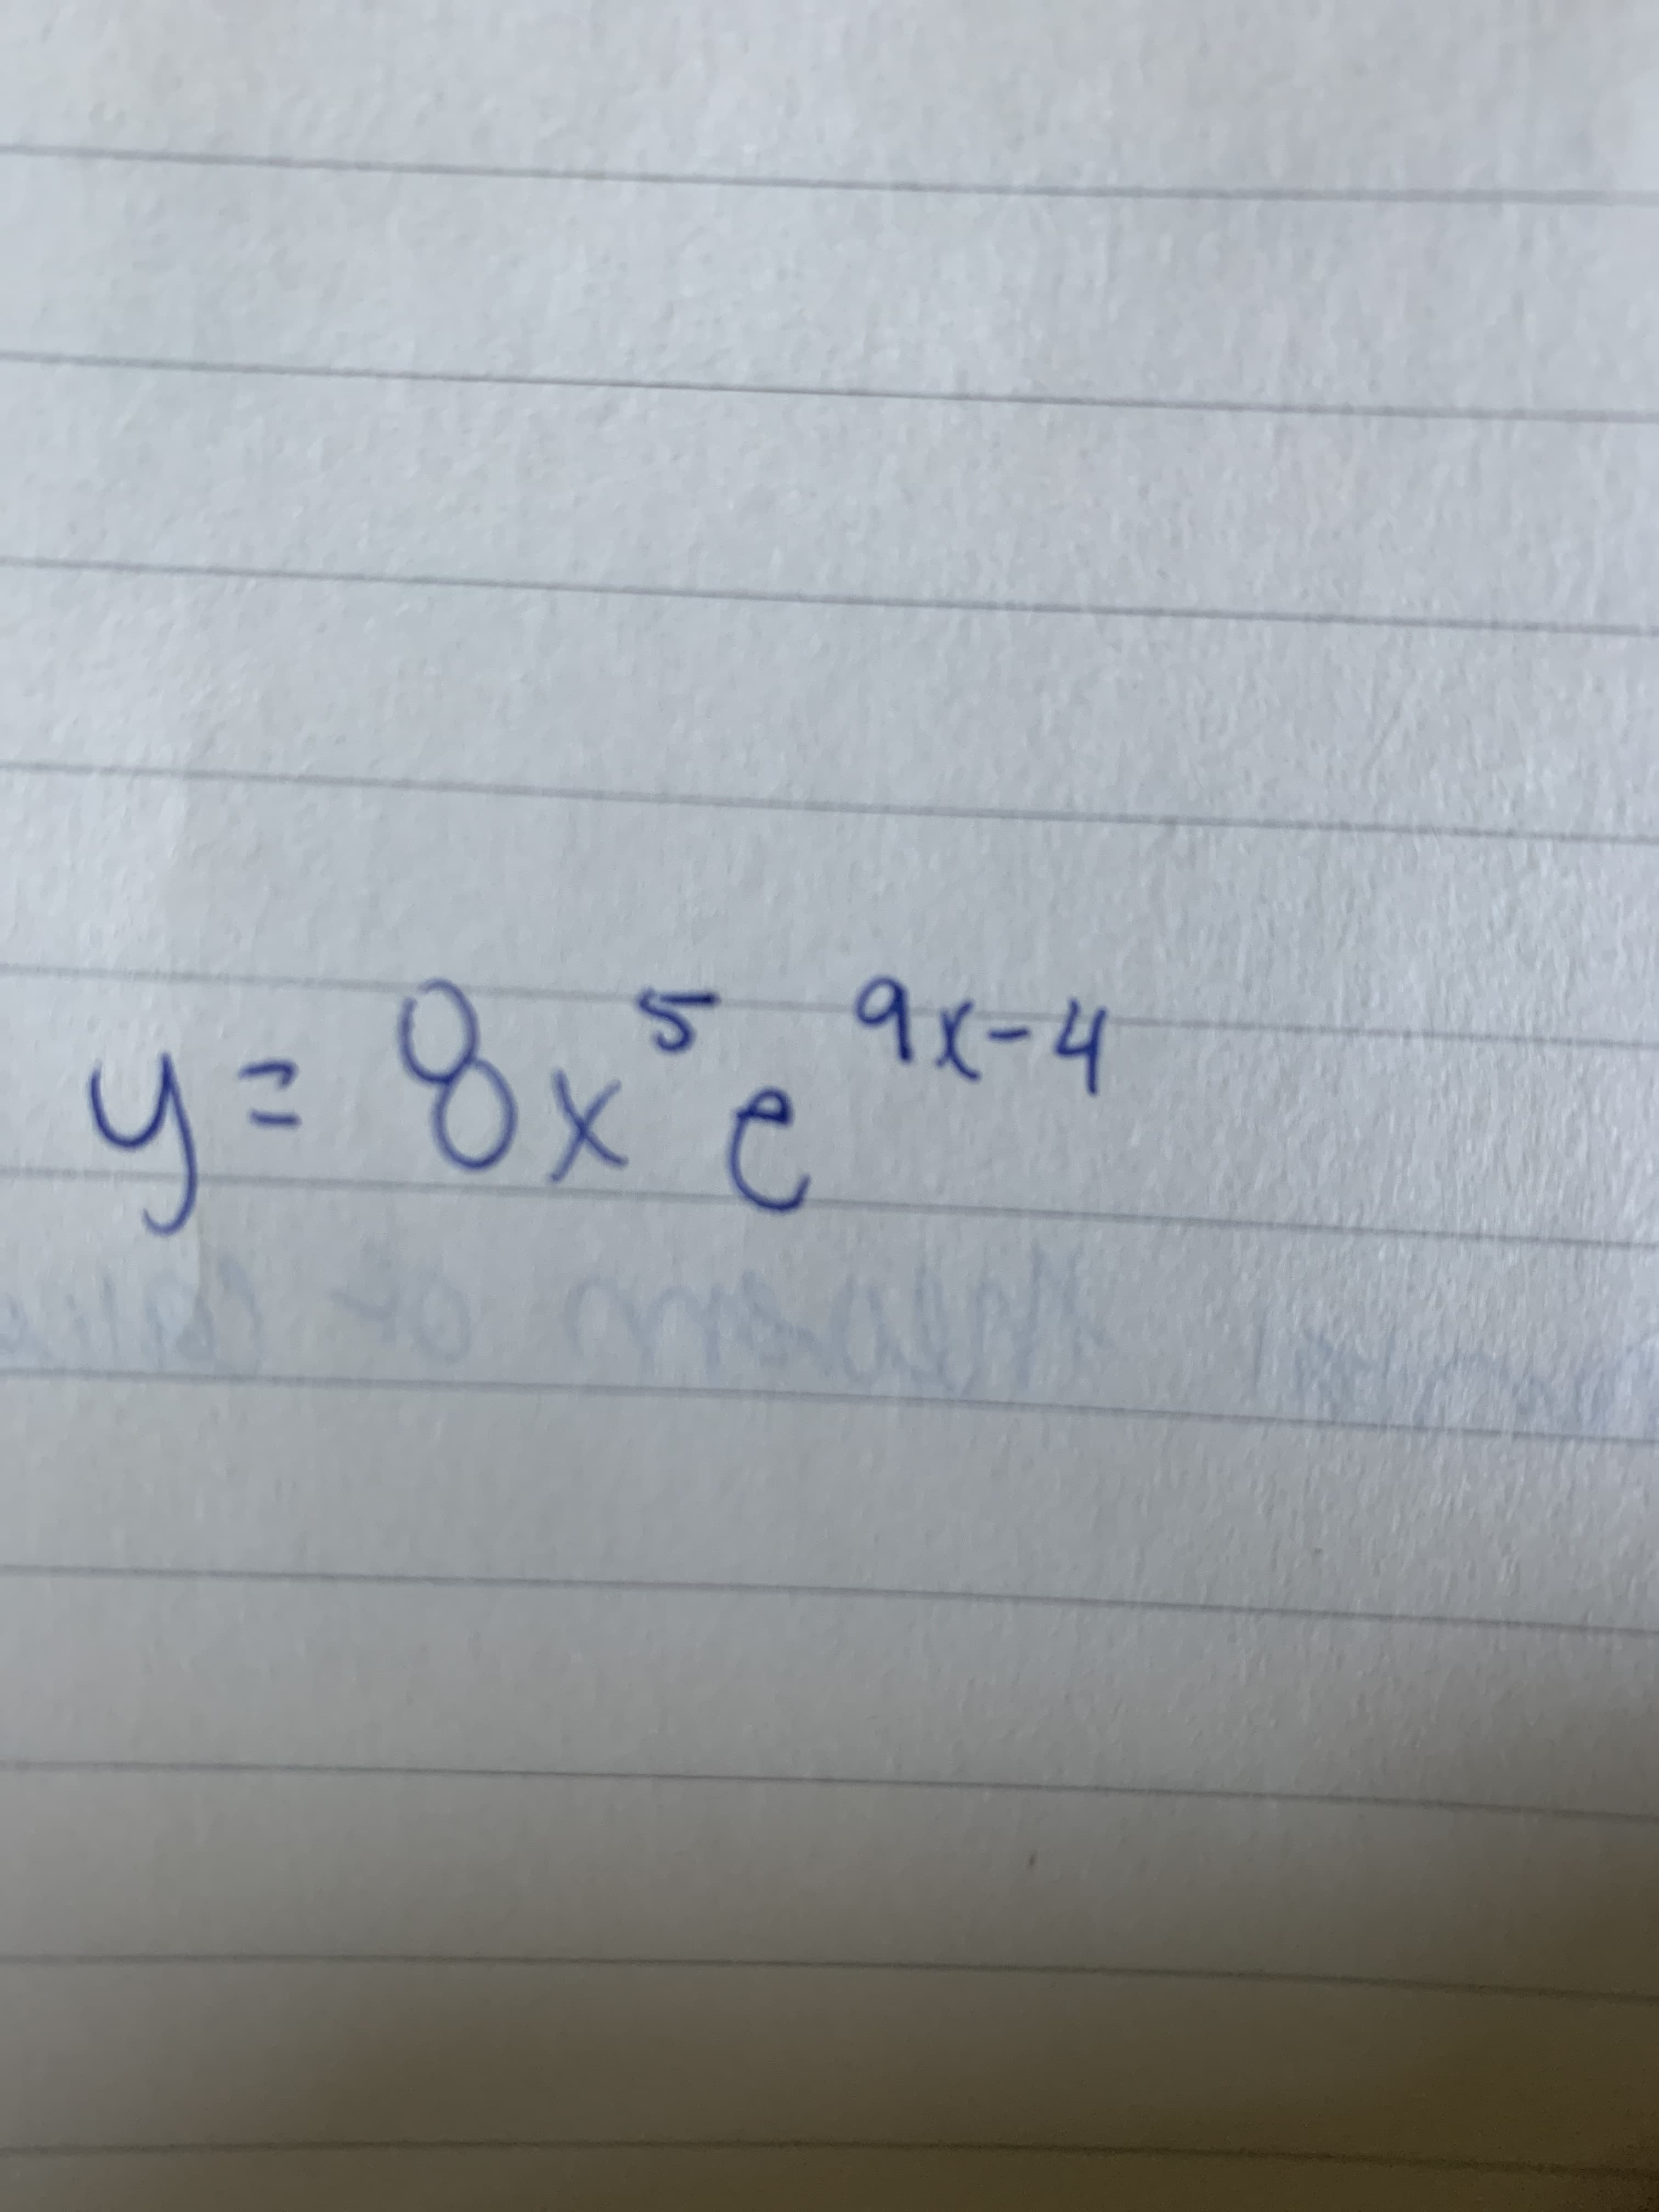 y = 8x⁵ e⁹ˣ⁻⁴